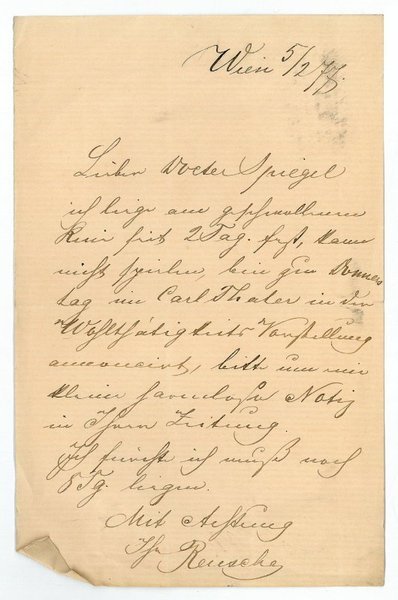 Wien 5/2 77.
Lieber Docter Spiegel
ich liege am geschwollenem
Knie seit 2 Tag. fest, kann
nicht spielen, bin zum Donners
tag im Carl Thater in der
Wohlthätigkeits Vorstellung
annoncirt, bitte um eine
kleine harmlose Notiz
in Ihrer Zeitung.
Ich fürchte ich muß noch
8 Tg. liegen.
Mit Achtung
Ihr Reusche